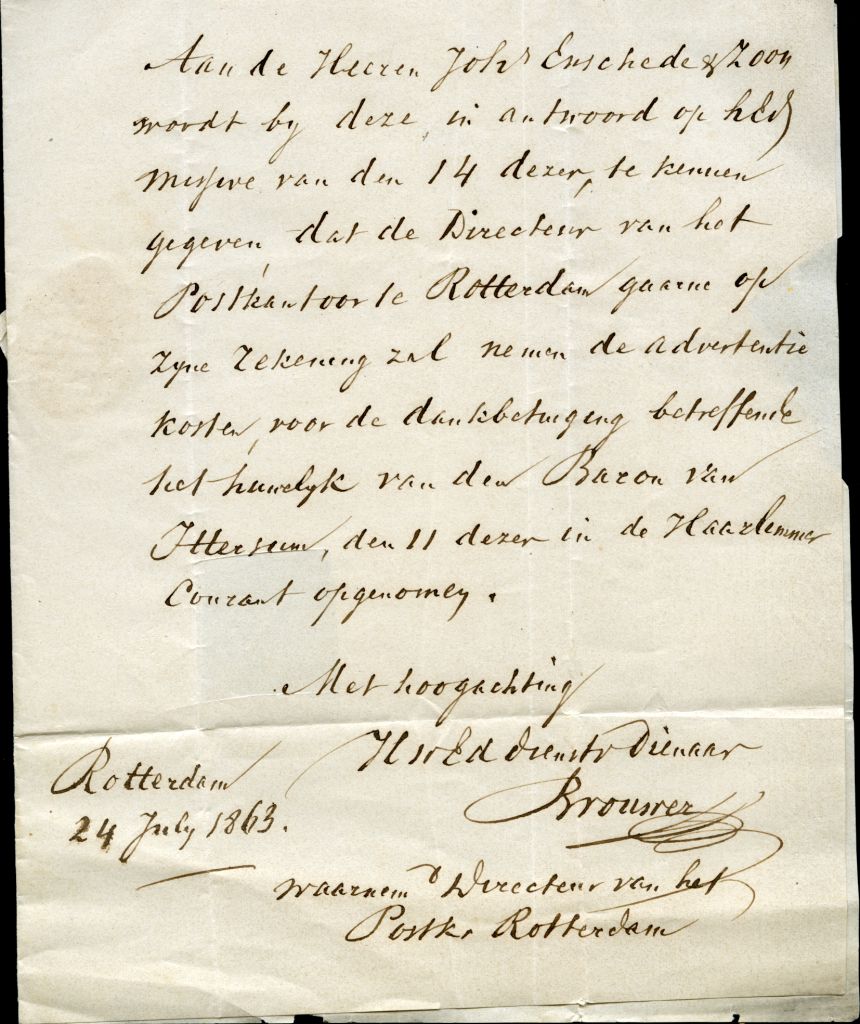 Aan de Heeren Joh^s Enschede & Zoon
wordt by deze, in antwoord op hEd
missive van den 14 dezer, te kennen
gegeven, dat de Directeur van het
Postkantoor te Rotterdam gaarne op
zyne rekening zal nemen de advertentie
kosten, voor de dankbetuiging betreffende
het huwelyk van den Baron van
Ittersum, den 11 dezer in de Haarlemmer
Courant opgenomen.
Met hoogachting
HwEd dienstv Dienaar
Rotterdam
24 July 1863.
Brouwer
waarnem^d Directeur van het
Postk. Rotterdam